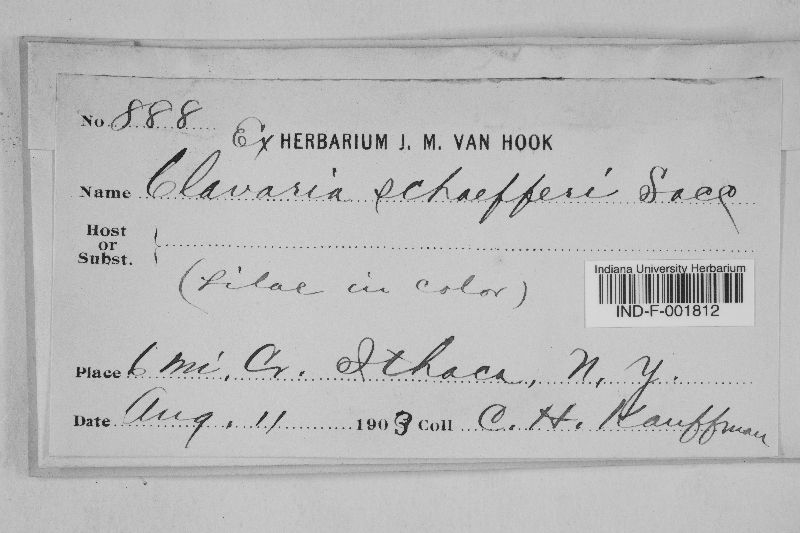 No. 888
Ex HERBARIUM J. M. VAN HOOK
Name Clavaria schaefferi Sacc
Host
or
Subst. {
(Lilac in color)
Indiana University Herbarium
IND-F-001812
Place 6 mi. Cr. Ithaca, N. Y.
Date Aug. 11 1903 Coll C. H. Kauffman